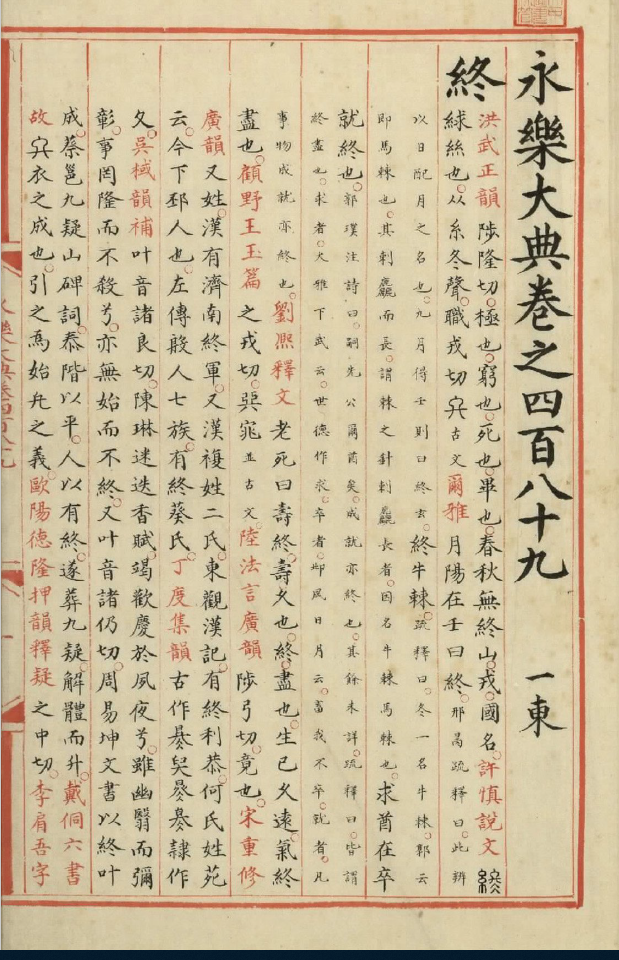 永樂大典卷之四百八十九 一東
終
洪武正韻陟隆切極也窮也死也畢也春秋無終山戎國名許慎說文
絿絲也从糸冬聲職戎切古文爾雅月陽在壬曰終邢昺疏釋曰此辨
以日配月之名也九月得壬則曰終玄終牛棘疏釋曰終一名牛棘郭云
即馬棘也其刺麤而長謂棘之針刺麤長者因名牛棘馬棘也求酋在卒
就終也郭璞注詩曰嗣先公爾酋矣成就亦終也其餘未詳疏釋曰皆謂
終盡也求者大雅下武云世德作求卒者邶風日月云畜我不卒就者凡
事物成就亦終也劉熙釋文老死曰壽終壽久也終盡也生已久遠氣終
盡也顧野王玉篇之戎切並古文陸法言廣韻陟弓切竟也宋重修
廣韻又姓漢有濟南終軍又漢複姓二氏東觀漢記有終利恭何氏姓苑
云今下邳人也左傳殷人七族有終葵氏丁度集韻古作隸作
夂吳棫韻補叶音諸良切陳琳迷迭香賦竭歡慶於夙夜兮雖幽翳而彌
彰事罔隆而不殺兮亦無始而不終又叶音諸仍切周易坤文書以終叶
成蔡邕九疑山碑詞泰階以平人以有終遂葬九疑解體而升戴侗六書
故衣之成也引之為始凡之義歐陽德隆押韻釋疑之中切李肩吾字